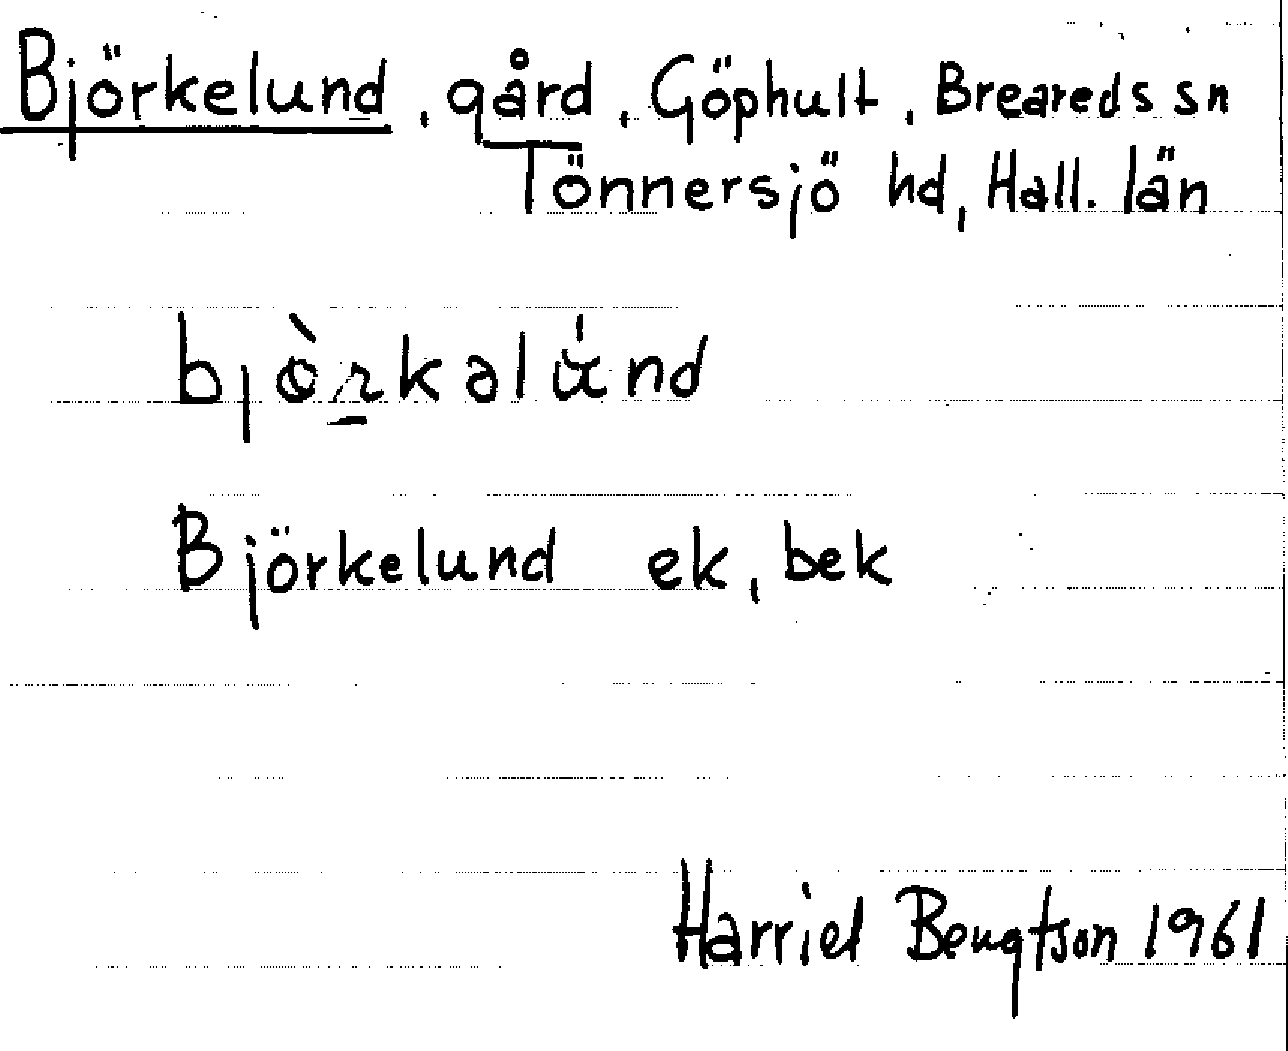 Björkelund, gård, Göphult, Breareds sn
Tönnersjö hd, Hall. län
Björkelund ek, bek
Harriel Bengtson 1961